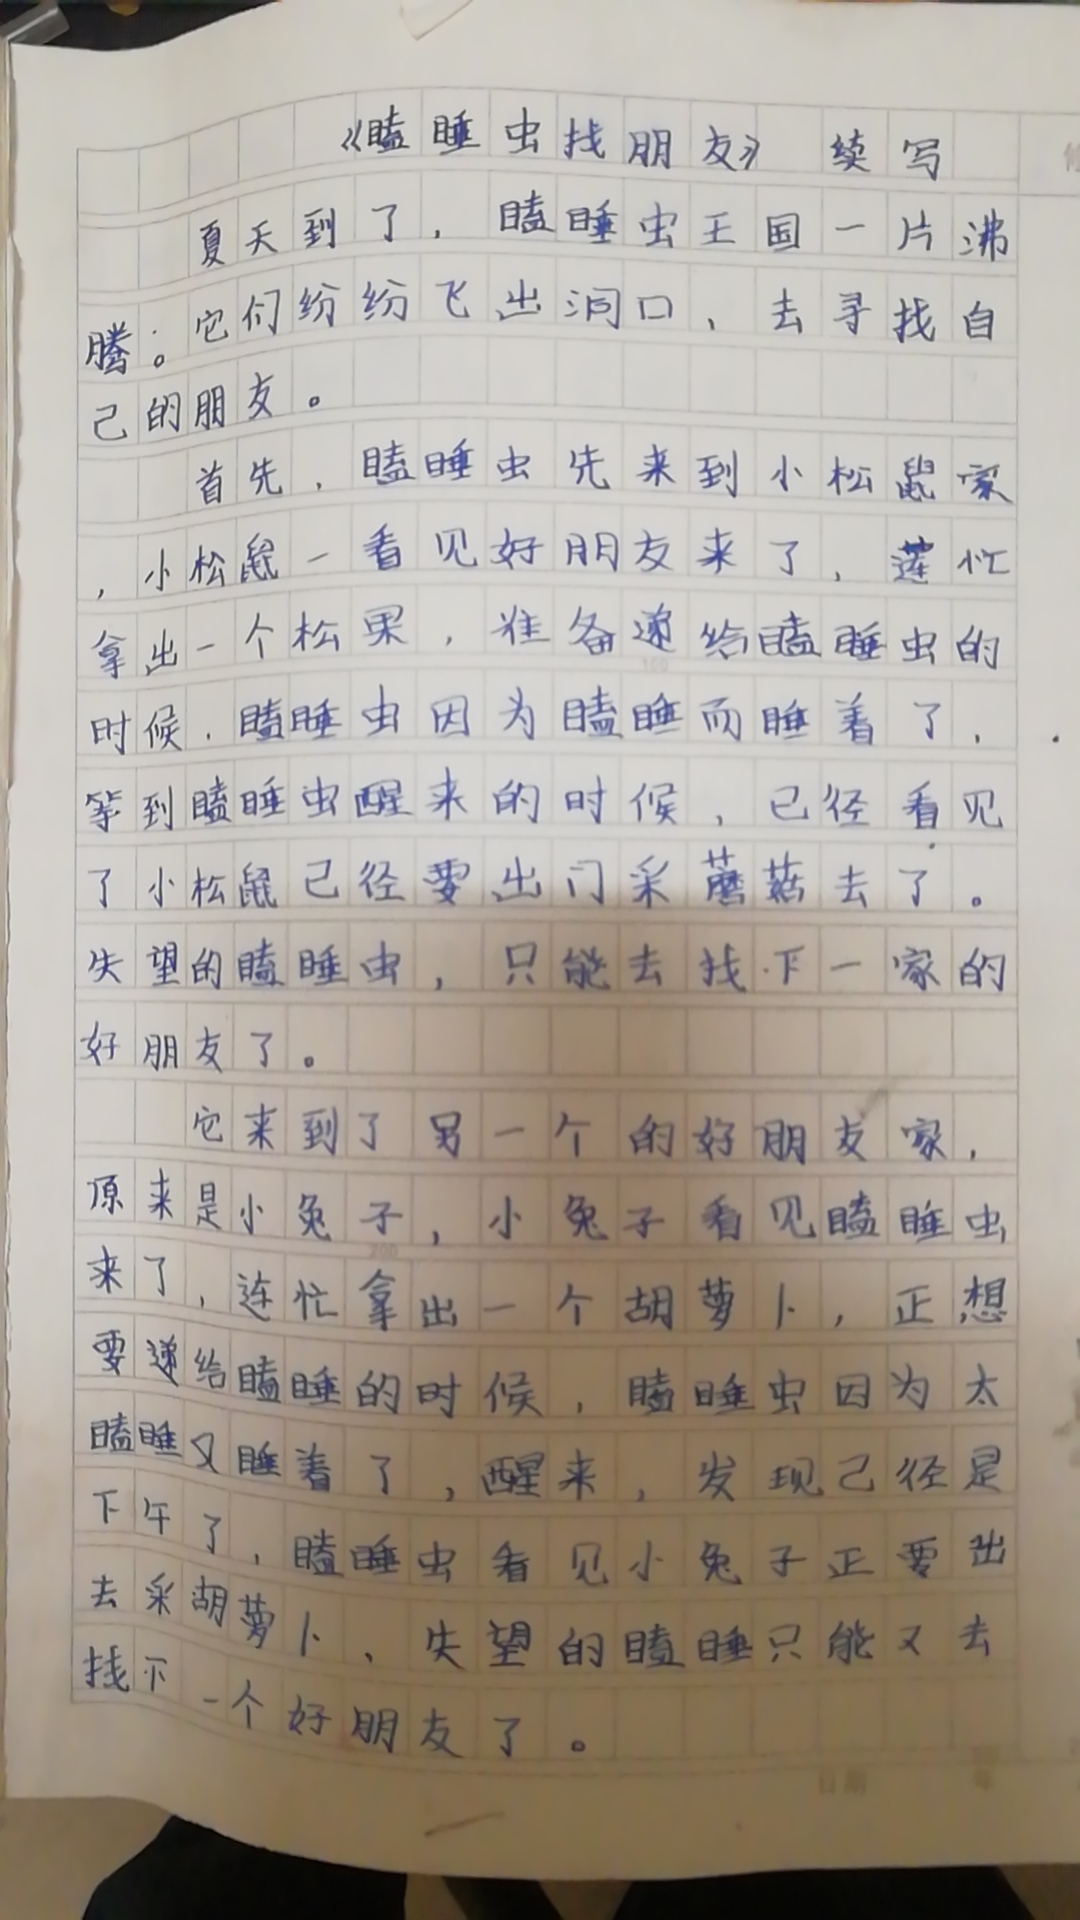 《瞌睡虫找朋友》 续写
夏天到了，瞌睡虫王国一片沸
腾。它们纷纷飞出洞口，去寻找自
己的朋友。
首先，瞌睡虫先来到小松鼠家
，小松鼠一看见好朋友来了，莲忙
拿出一个松果，准备递给瞌睡虫的
时候，瞌睡虫因为瞌睡而睡着了，
等到瞌睡虫醒来的时候，己径看见
了小松鼠己径要出门采蘑菇去了。
失望的瞌睡虫，只能去找下一家的
好朋友了。
它来到了另一个的好朋友家，
原来是小兔子，小兔子看见瞌睡虫
来了，连忙拿出一个胡萝卜，正想
要递给瞌睡的时候，瞌睡虫因为太
瞌睡又睡着了，醒来，发现己径是
下午了，瞌睡虫看见小兔子正要出
去采胡萝卜、失望的瞌睡只能又去
找下一个好朋友了。